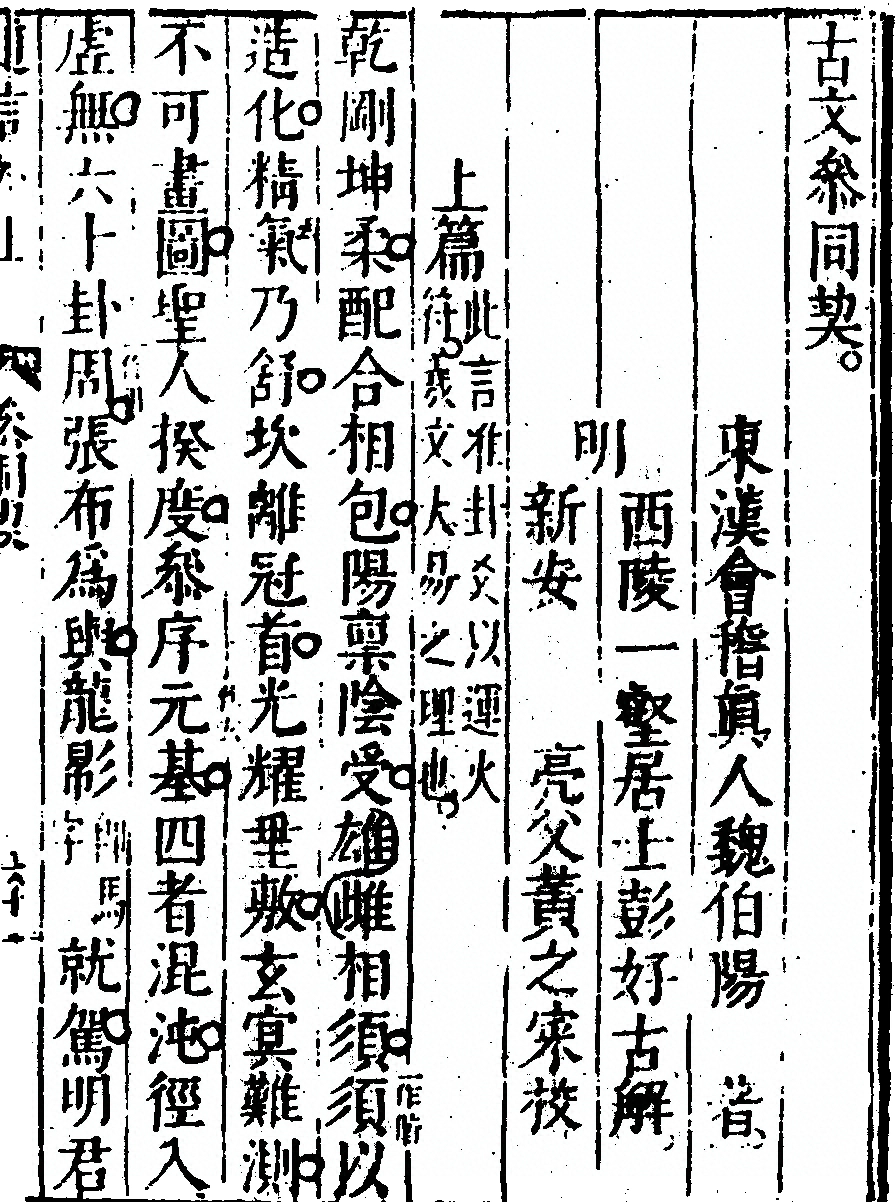 古文叅同契
東漢會稽眞人魏伯陽 著
西陵一壑居士彭好古解
明
新安 亮父黄之寀校
上篇 此言准卦爻以運火符義文大易之理也
乾剛坤柔配合相包陽禀隂受雄雌相須須以
造化精氣乃舒坎離冠首光耀垂敷玄冥難測
不可畫圖聖人揆度叅序元基四者混沌徑入
虛無六十卦周張布爲輿龍 就駕明君
叅同契